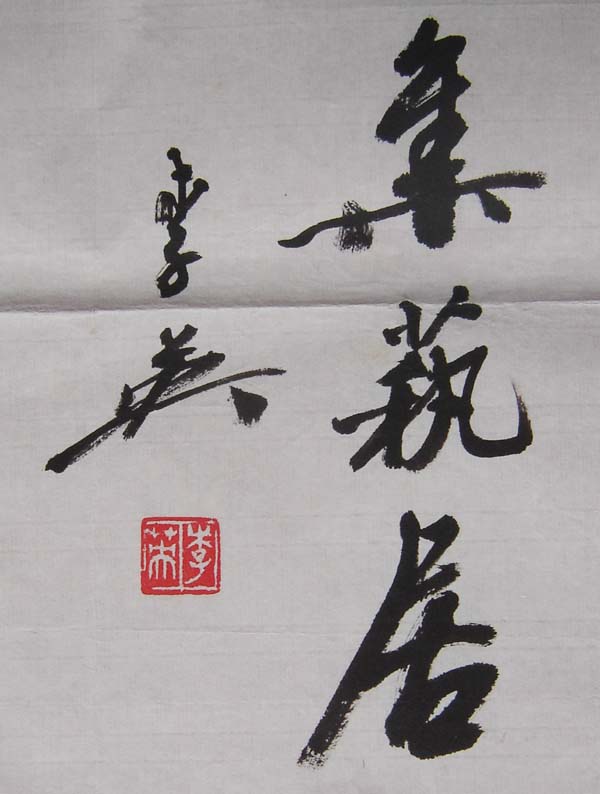 集蓺居
李英
李英